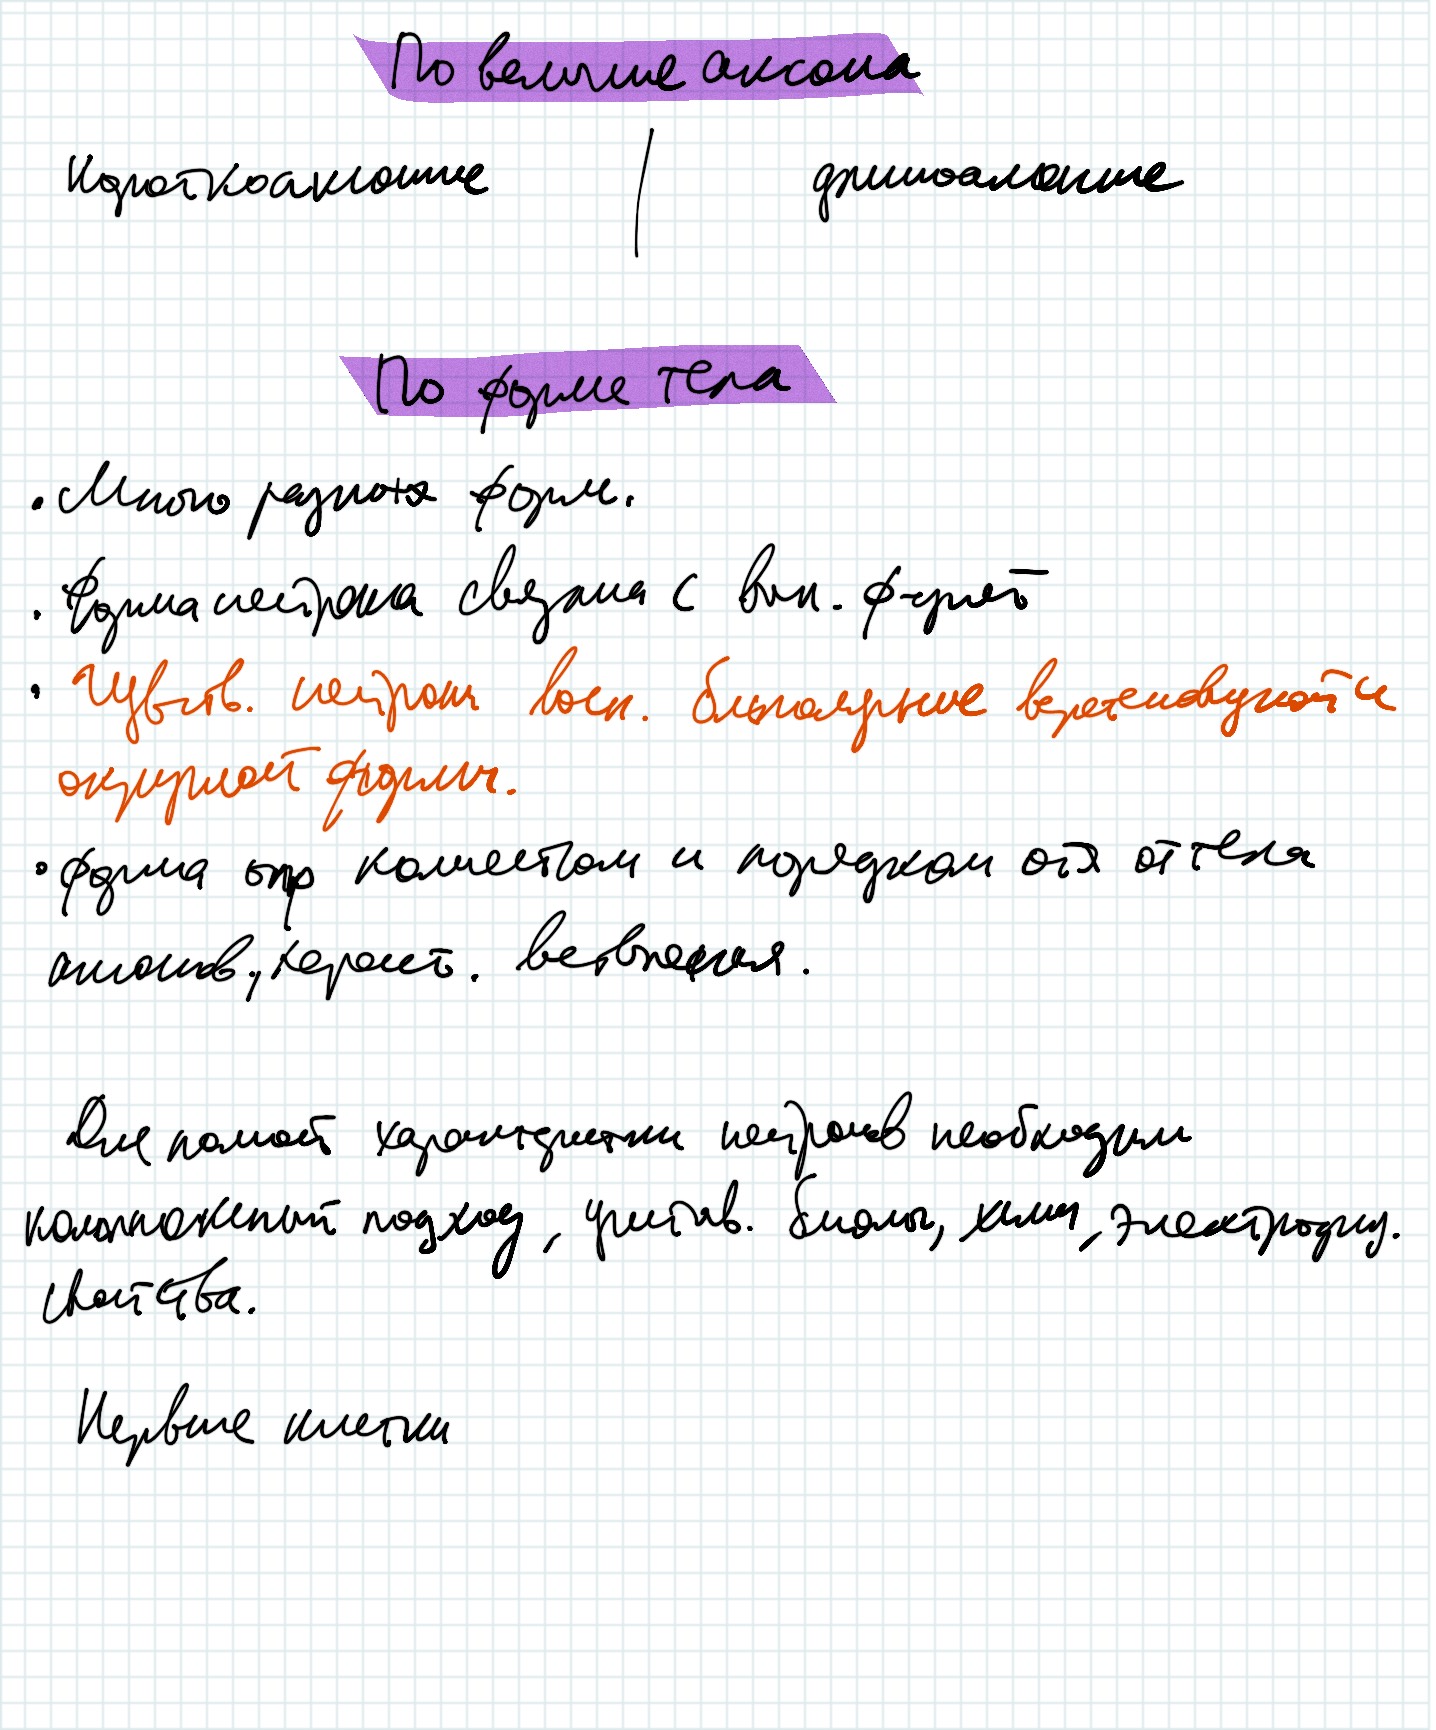 По величине аксона
Короткоаксонные | длинноаксонные
По форме тела
• Много разных форм.
• Форма нейрона связана с вып. ф-цией
• Чувств. нейроны восп. биполярные веретеновидной и
округлой формы.
• Форма опр количеством и порядком отх от тела
аксонов, характ. ветвления.
Для полной характеристики нейронов необходим
комплексный подход, учитыв. биолог, хим, электрофиз.
свойства.
Нервные клетки